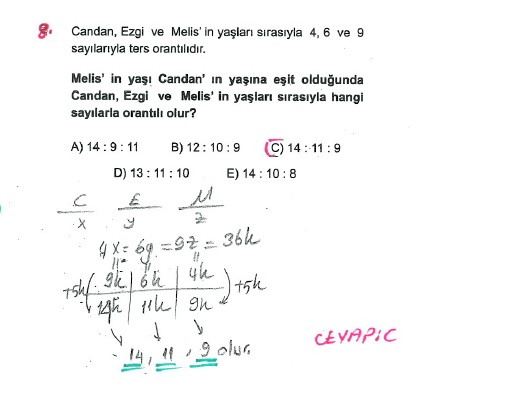 8. Candan, Ezgi ve Melis' in yaşları sırasıyla 4, 6 ve 9
sayılarıyla ters orantılıdır.
Melis' in yaşı Candan' ın yaşına eşit olduğunda
Candan, Ezgi ve Melis' in yaşları sırasıyla hangi
sayılarla orantılı olur?
A) 14 : 9 : 11 B) 12 : 10 : 9 C) 14 : 11 : 9
D) 13 : 11 : 10 E) 14 : 10 : 8
C E M
x y z
4x = 6y = 9z = 36k
+5k 9k 6k 4k +5k
14k 11k 9k
14, 11, 9 olur.
CEVAP: C